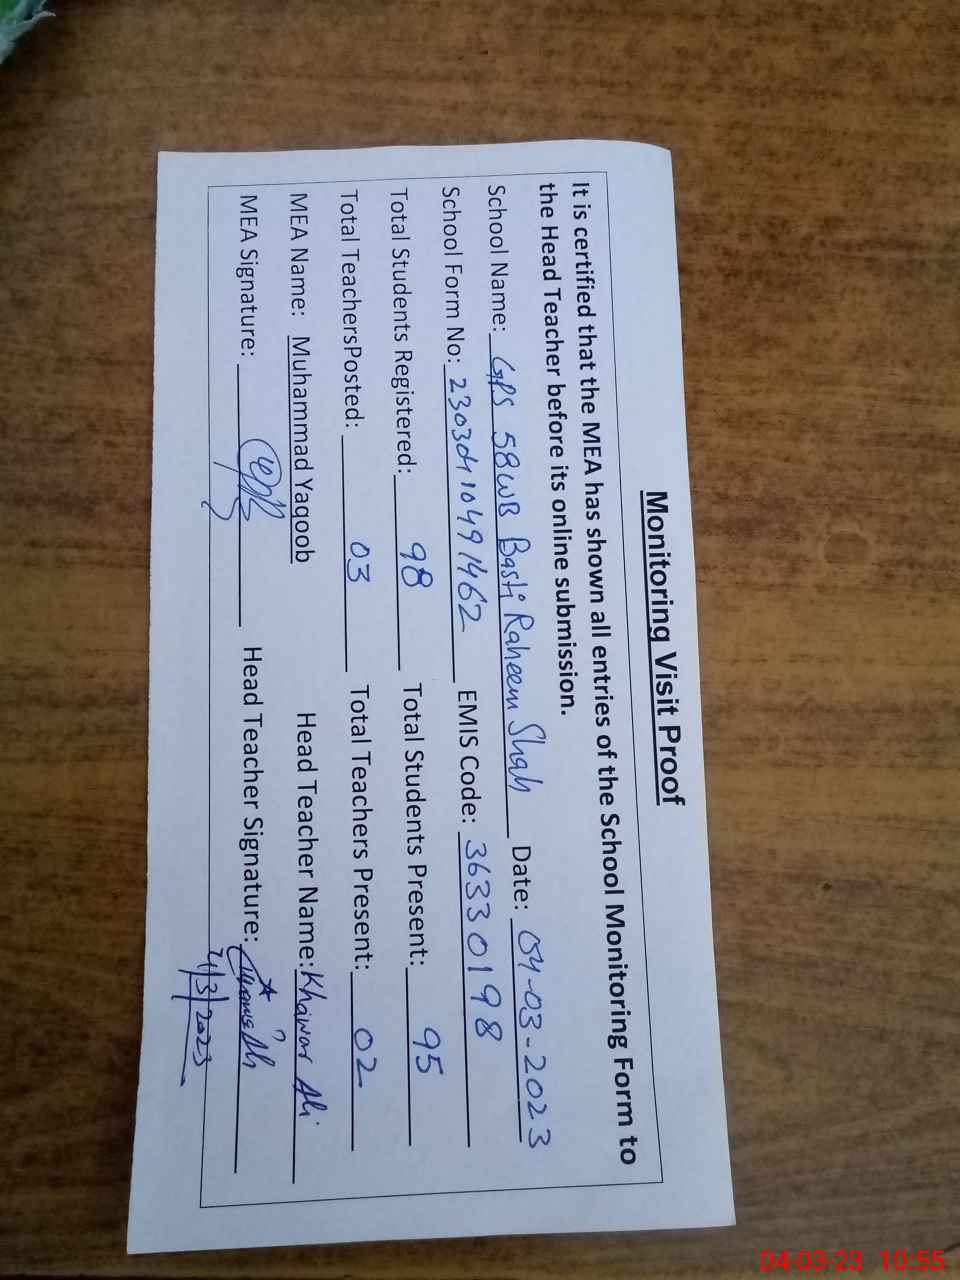 Monitoring Visit Proof
It is certified that the MEA has shown all entries of the School Monitoring Form to
the Head Teacher before its online submission.
School Name: GPS 58WB Basti Raheem Shah Date: 04-03-2023
School Form No: 23030410491462 EMIS Code: 36330198
Total Students Registered: 98 Total Students Present: 95
Total TeachersPosted: 03 Total Teachers Present: 02
MEA Name: Muhammad Yaqoob Head Teacher Name: Khawar Ali
MEA Signature: Head Teacher Signature:
4/3/2023
04-03-23 10:55